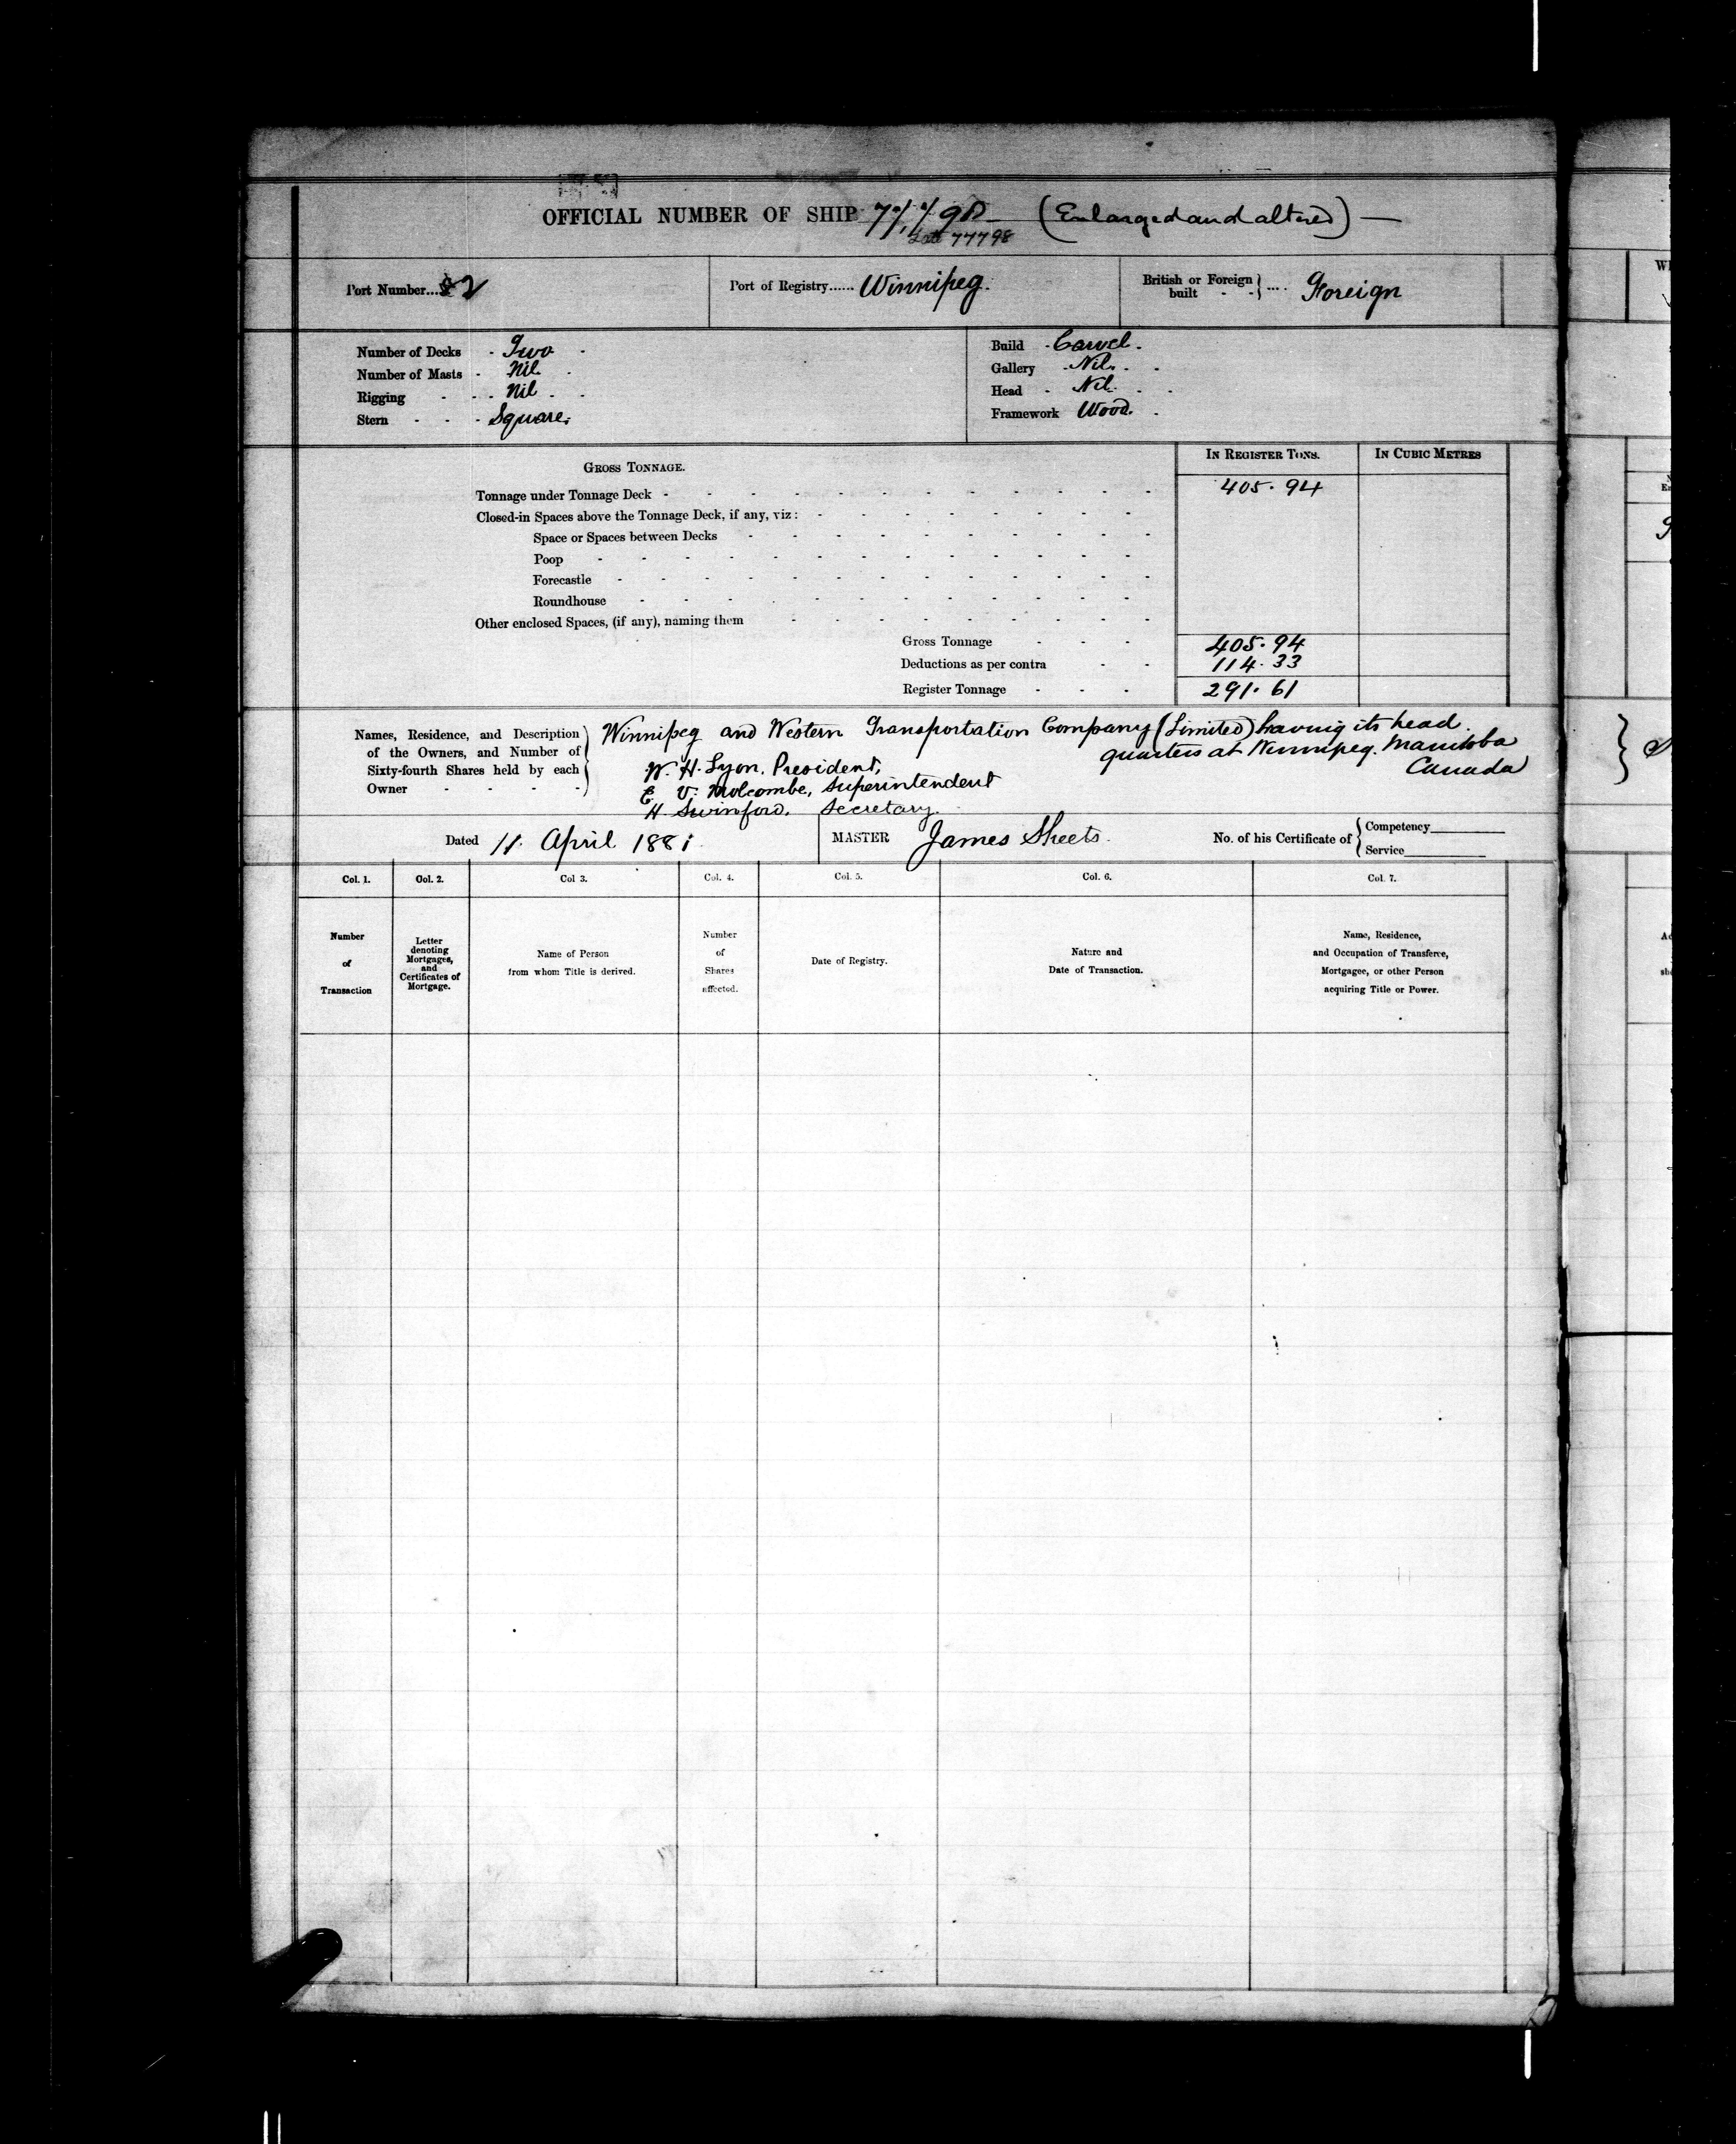 OFFICIAL NUMBER OF SHIP (Enlarged and altered) —
Late 77798
Port Number... 82
Port of Registry...... Winnipeg.
British or Foreign built - - } .... Foreign
Number of Decks - Two -
Number of Masts - Nil -
Rigging - - - Nil - -
Stern - - - Square.
Build - Carvel.
Gallery - Nil. - -
Head - Nil - -
Framework Wood. -
GROSS TONNAGE.
IN REGISTER TONS.
IN CUBIC METRES
Tonnage under Tonnage Deck - 405.94
Closed-in Spaces above the Tonnage Deck, if any, viz :
Space or Spaces between Decks
Poop
Forecastle
Roundhouse
Other enclosed Spaces, (if any), naming them
Gross Tonnage - - - 405.94
Deductions as per contra - - 114.33
Register Tonnage - - - 291.61
Names, Residence, and Description
of the Owners, and Number of
Sixty-fourth Shares held by each
Owner - - - -
Winnipeg and Western Transportation Company (Limited) having its head
quarters at Winnipeg. Manitoba
Canada
W. H. Lyon, President,
E. V. Holcombe, Superintendent
H. Swinford. Secretary.
Dated 11. April 1881.
MASTER James Sheets.
No. of his Certificate of { Competency
Service
Col. 1.
Col. 2.
Col 3.
Col. 4.
Col. 5.
Col. 6.
Col. 7.
Number
of
Transaction
Letter
denoting
Mortgages,
and
Certificates of
Mortgage.
Name of Person
from whom Title is derived.
Number
of
Shares
affected.
Date of Registry.
Nature and
Date of Transaction.
Name, Residence,
and Occupation of Transferee,
Mortgagee, or other Person
acquiring Title or Power.